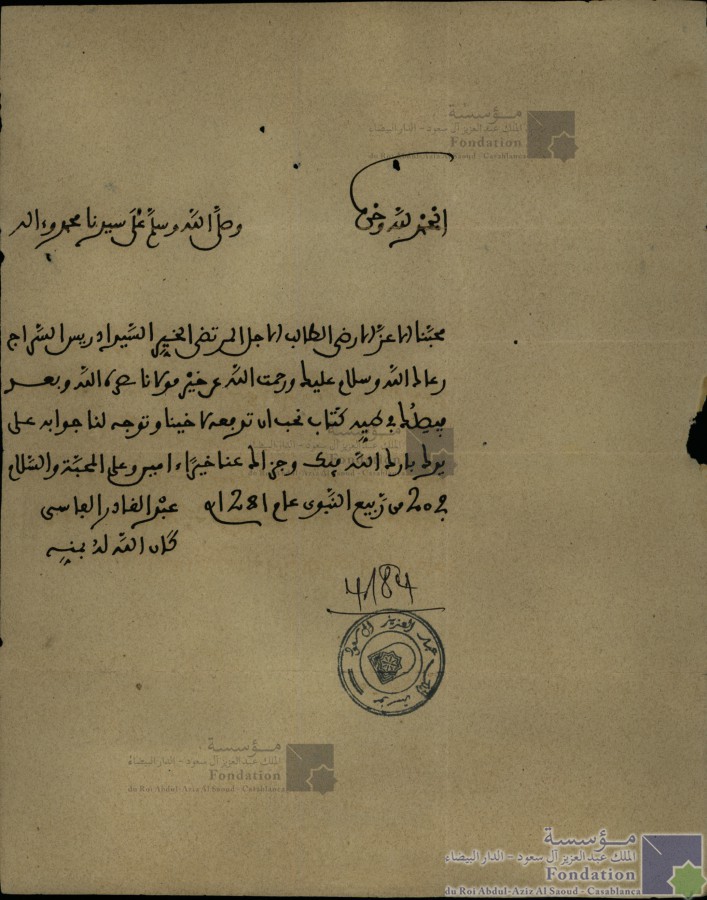 مؤسسة
الملك عبد العزيز آل سعود - الدار البيضاء
Fondation
du Roi Abdul-Aziz Al Saoud - Casablanca
الحمد لله وحده وصلى الله وسلم على سيدنا محمد وءاله
محبنا الاعز الارضى الطالب الاجل المرتضى الخير السيد ادريس السراج
رعاك الله وسلام عليك ورحمت الله عن خير مولانا نصره الله وبعد
فيصلك طيه كتاب نحب ان تدفعه لاخينا وتوجه لنا جوابه على
يدك بارك الله فيك وجزاك عنا خيرا ءامين وعلى المحبة والسلام
في 20 من ربيع النبوي عام 1281 عبد القادر الفاسي
كان الله له بمنه
4/184
مؤسسة الملك عبد العزيز آل سعود
الملك عبد العزيز آل سعود - الدار البيضاء
مؤسسة
الملك عبد العزيز آل سعود - الدار البيضاء
Fondation
du Roi Abdul-Aziz Al Saoud - Casablanca
مؤسسة
الملك عبد العزيز آل سعود - الدار البيضاء
Fondation
du Roi Abdul-Aziz Al Saoud - Casablanca